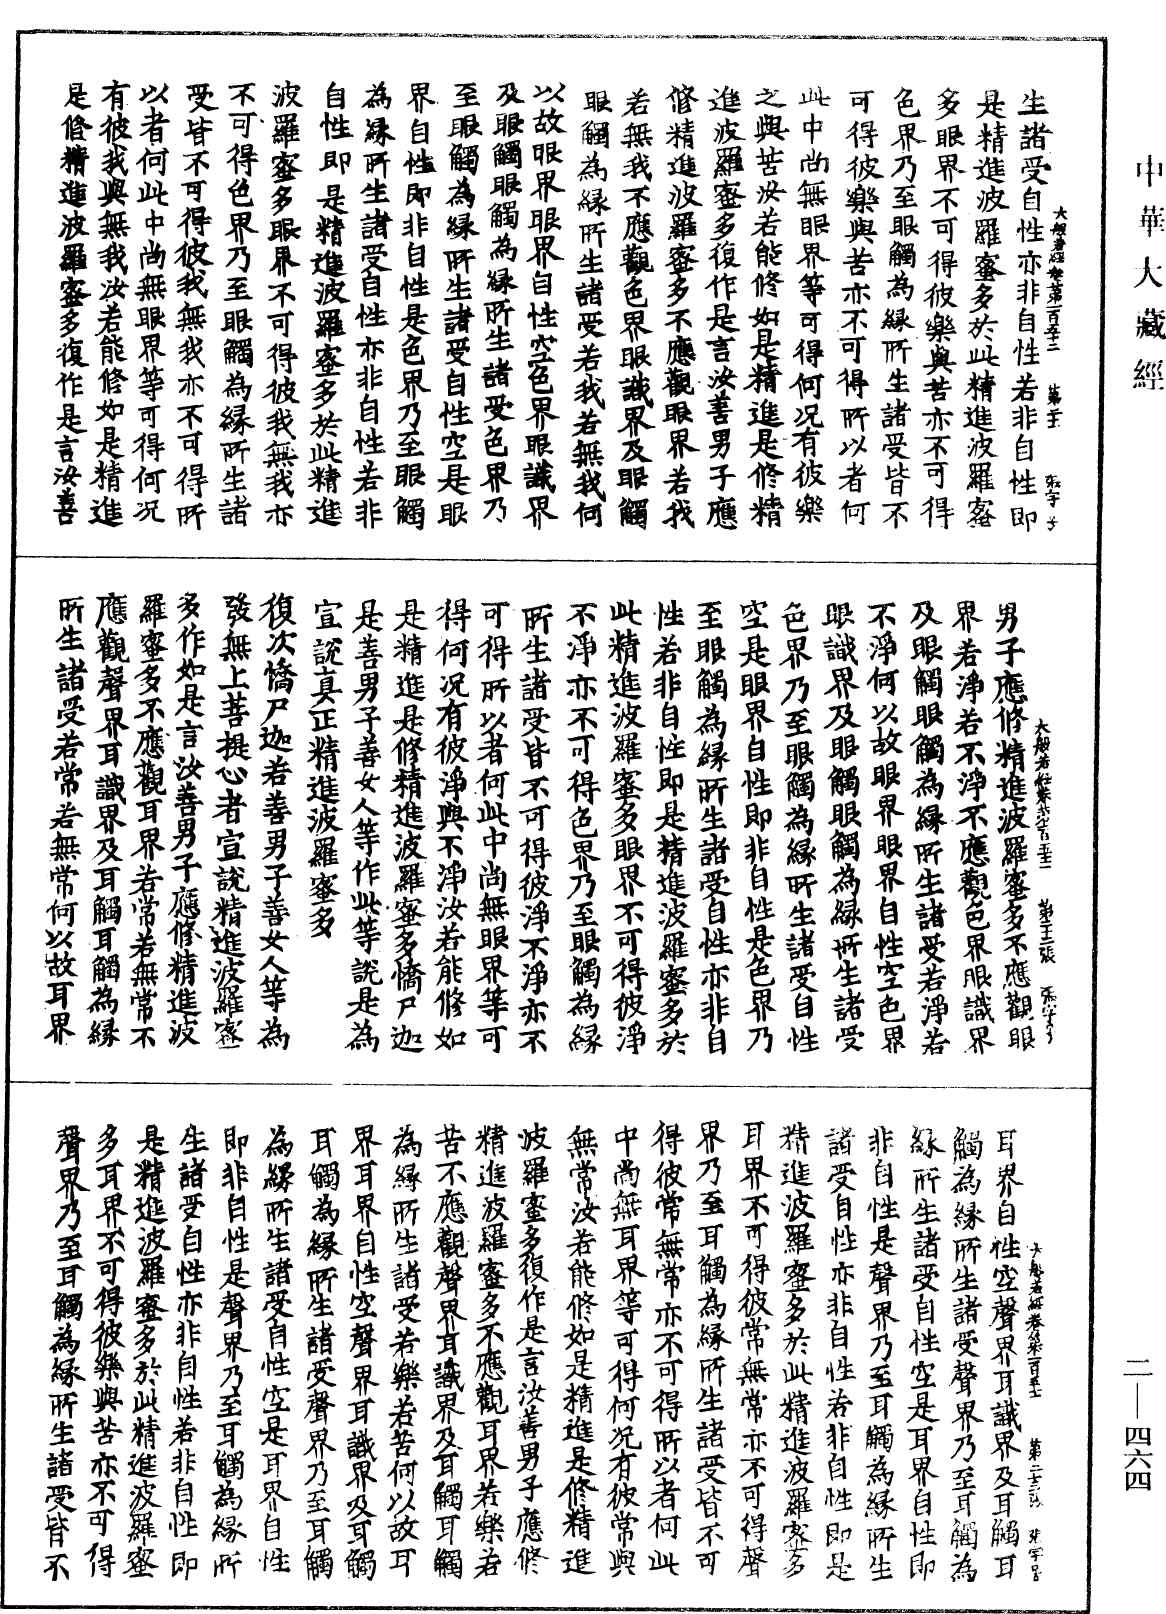 中華大藏經
大般若經卷第一百五十二
生諸受自性亦非自性若非自性即
是精進波羅蜜多於此精進波羅蜜
多眼界不可得彼樂與苦亦不可得
色界乃至眼觸為緣所生諸受皆不
可得彼樂與苦亦不可得所以者何
此中尚無眼界等可得何況有彼樂
之與苦汝若能修如是精進是修精
進波羅蜜多復作是言汝善男子應
修精進波羅蜜多不應觀眼界若我
若無我不應觀色界眼識界及眼觸
眼觸為緣所生諸受若我若無我何
以故眼界眼界自性空色界眼識界
及眼觸眼觸為緣所生諸受色界乃
至眼觸為緣所生諸受自性空是眼
界自性即非自性是色界乃至眼觸
為緣所生諸受自性亦非自性若非
自性即是精進波羅蜜多於此精進
波羅蜜多眼界不可得彼我無我亦
不可得色界乃至眼觸為緣所生諸
受皆不可得彼我無我亦不可得所
以者何此中尚無眼界等可得何況
有彼我與無我汝若能修如是精進
是修精進波羅蜜多復作是言汝善
男子應修精進波羅蜜多不應觀眼
界若淨若不淨不應觀色界眼識界
及眼觸眼觸為緣所生諸受若淨若
不淨何以故眼界眼界自性空色界
眼識界及眼觸眼觸為緣所生諸受
色界乃至眼觸為緣所生諸受自性
空是眼界自性即非自性是色界乃
至眼觸為緣所生諸受自性亦非自
性若非自性即是精進波羅蜜多於
此精進波羅蜜多眼界不可得彼淨
不淨亦不可得色界乃至眼觸為緣
所生諸受皆不可得彼淨不淨亦不
可得所以者何此中尚無眼界等可
得何況有彼淨與不淨汝若能修如
是精進是修精進波羅蜜多憍尸迦
是善男子善女人等作此等說是為
宣說真正精進波羅蜜多
復次憍尸迦若善男子善女人等為
發無上菩提心者宣說精進波羅蜜
多作如是言汝善男子應修精進波
羅蜜多不應觀耳界若常若無常不
應觀聲界耳識界及耳觸耳觸為緣
所生諸受若常若無常何以故耳界
耳界自性空聲界耳識界及耳觸耳
觸為緣所生諸受聲界乃至耳觸為
緣所生諸受自性空是耳界自性即
非自性是聲界乃至耳觸為緣所生
諸受自性亦非自性若非自性即是
精進波羅蜜多於此精進波羅蜜多
耳界不可得彼常無常亦不可得聲
界乃至耳觸為緣所生諸受皆不可
得彼常無常亦不可得所以者何此
中尚無耳界等可得何況有彼常與
無常汝若能修如是精進是修精進
波羅蜜多復作是言汝善男子應修
精進波羅蜜多不應觀耳界若樂若
苦不應觀聲界耳識界及耳觸耳觸
為緣所生諸受若樂若苦何以故耳
界耳界自性空聲界耳識界及耳觸
耳觸為緣所生諸受聲界乃至耳觸
為緣所生諸受自性空是耳界自性
即非自性是聲界乃至耳觸為緣所
生諸受自性亦非自性若非自性即
是精進波羅蜜多於此精進波羅蜜
多耳界不可得彼樂與苦亦不可得
聲界乃至耳觸為緣所生諸受皆不
二—四六四